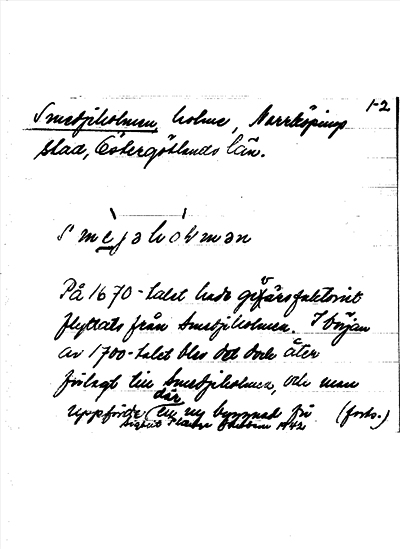 1-2
Smedjeholmen, holme, Norrköpings
stad, Östergötlands län.
smejahoлmən
På 1670-talet hade gevärsfaktoriet
flyttats från Smedjeholmen. I början
av 1700-talet blev det dock åter
förlagt till Smedjeholmen, och man
uppförde där en ny byggnad för (forts.)
1942